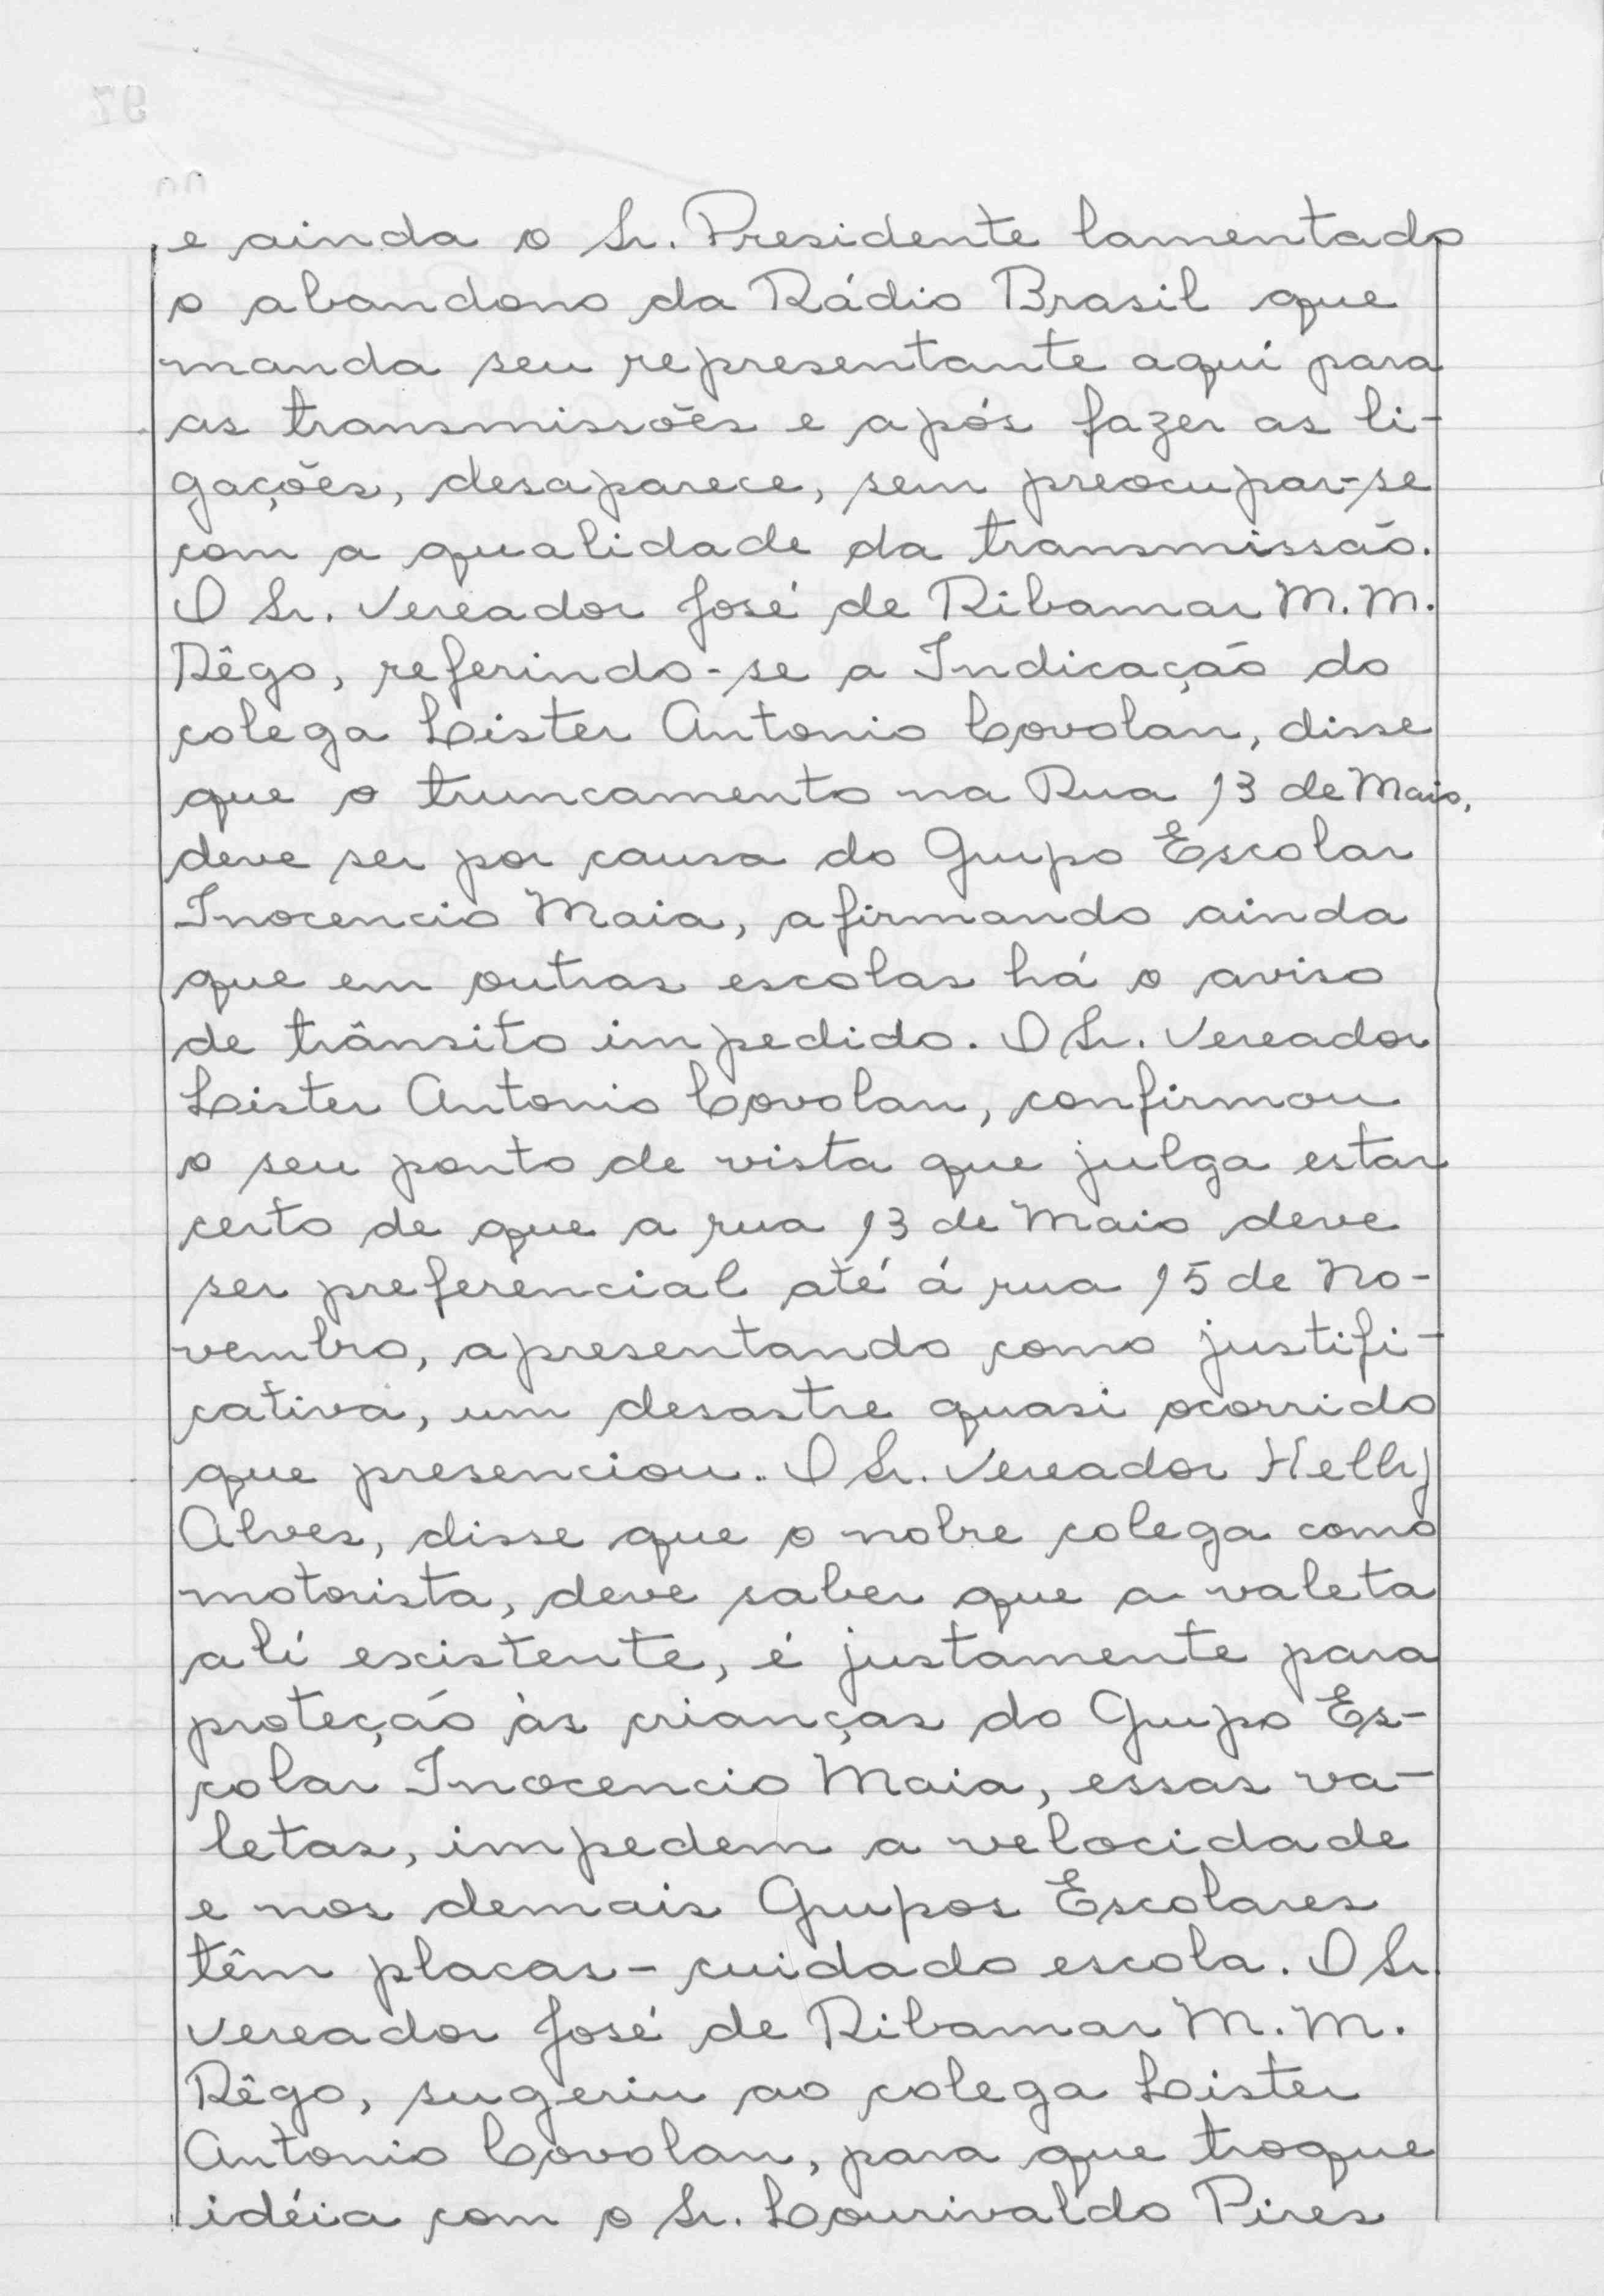 e ainda o Sr. Presidente lamentado
o abandono da Rádio Brasil que
manda seu representante aquí para
as transmissões e após fazer as li-
gações, desaparece, sem preocupar-se
com a qualidade da transmissão.
O Sr. Vereador José de Ribamar M. M.
Rêgo, referindo-se a Indicação do
colega Lister Antonio Covolan, disse
que o truncamento na Rua 13 de Maio,
deve ser por causa do Grupo Escolar
Inocencio Maia, afirmando ainda
que em outras escolas há o aviso
de trânsito impedido. O Sr. Vereador
Lister Antonio Covolan, confirmou
o seu ponto de vista que julga estar
certo de que a rua 13 de Maio deve
ser preferencial até á rua 15 de No-
vembro, apresentando como justifi-
cativa, um desastre quasi ocorrido
que presenciou. O Sr. Vereador Helly
Alves, disse que o nobre colega como
motorista, deve saber que a valeta
alí existente, é justamente para
proteção às crianças do Grupo Es-
colar Inocencio Maia, essas va-
letas, impedem a velocidade
e nos demais Grupos Escolares
têm placas - cuidado escola. O Sr.
Vereador José de Ribamar M. M.
Rêgo, sugeriu ao colega Lister
Antonio Covolan, para que troque
idéia com o Sr. Lourivaldo Pires